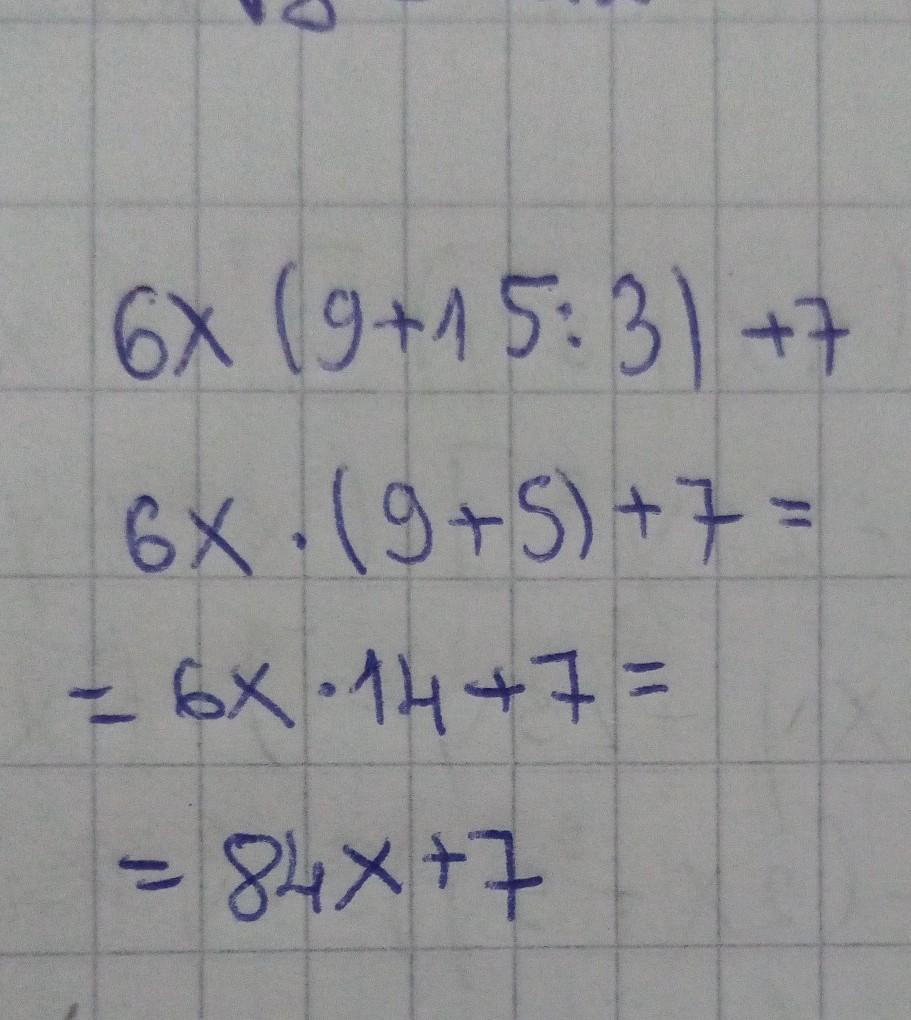 6x (9+15:3) +7
6x · (9+5) + 7 =
= 6x · 14 + 7 =
= 84x + 7